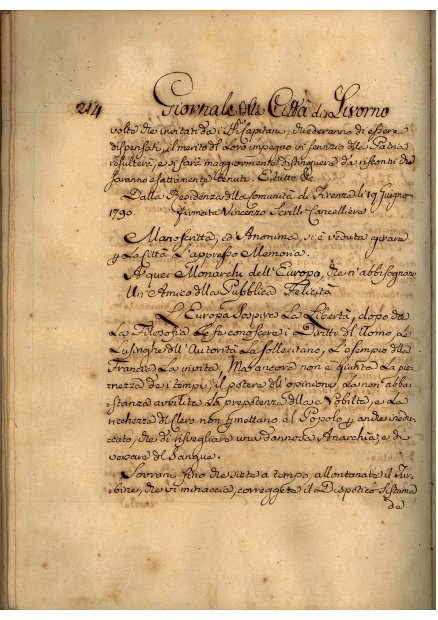 214 Giornale della Città di Livorno
volte che invitati da i SS. Capitani, crederanno di essere
dispensati, il merito del Loro impegno in servizio della Patria
resulterà, e si farà maggiormente distinguere da riscontri che
saranno esattamente tenuti. E tutto &c
Dalla Residenza della Comunità di Firenze li 19 Giugno
1790. Firmato Vincenzo Scrilli Cancelliere
Manoscritta, ed Anonima, si è veduta girare
p La Città L'appresso Memoria.
A quei Monarchi dell'Europa, che n'abbisognano
Un'Amico della Pubblica Felicità
L'Europa Sospira La Libertà, dopo che
La Filosofia Le fa conoscere i Diritti dell'Uomo, Le
Lusinghe dell'Autorità La sollecitano, L'esempio della
Francia La invita, Ma ancora non è giunta La pie-
nezza de i tempi, il potere dell'opinione, La non abba-
stanza avvilita La prepotenza della Nobiltà, e La
ricchezza del Clero non p mettano al Popolo p anche inedu-
cato, che di risvegliare una dannosa Anarchia, e di
versare del Sangue.
Sovrani, fino che siete a tempo, allontanate il Tur-
bine, che vi minaccia, correggete il Dispotico Sistema
de